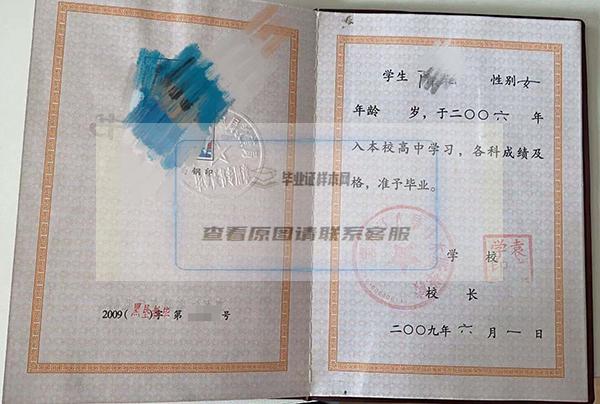 钢印
2009( )字第 号
学生 性别女
年龄 岁，于二〇〇六年
入本校高中学习，各科成绩及
格，准予毕业。
学校
校长
二〇〇九年六月一日
毕业证样本网
查看原图请联系客服